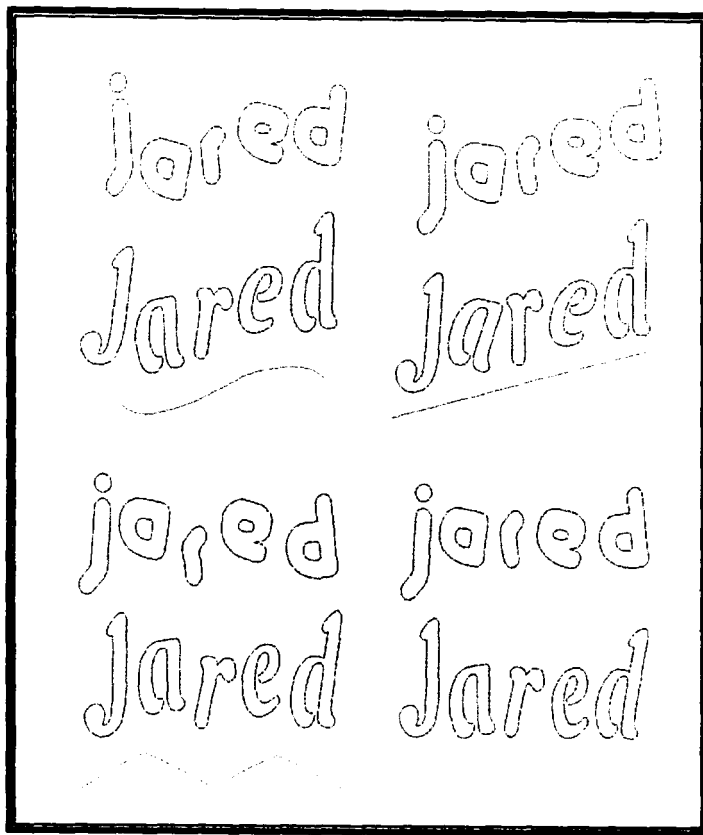 jared jared
Jared Jared
jared jared
Jared Jared